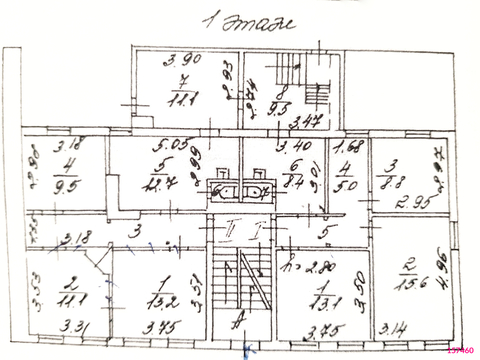 1 этаж
3.90
7
11.1
2.93
2.74
8
9.5
3.47
3.18
4
9.5
2.98
5.05
5
12.7
2.99
6
7
3.40
6
8.4
3.01
1.68
4
5.0
3
8.8
2.97
2.95
3.18
3
II
I
5
3.53
2
11.1
3.31
1
13.2
3.51
3.75
А
h=2.80
1
13.1
3.50
3.75
2
15.6
4.96
3.14
157460